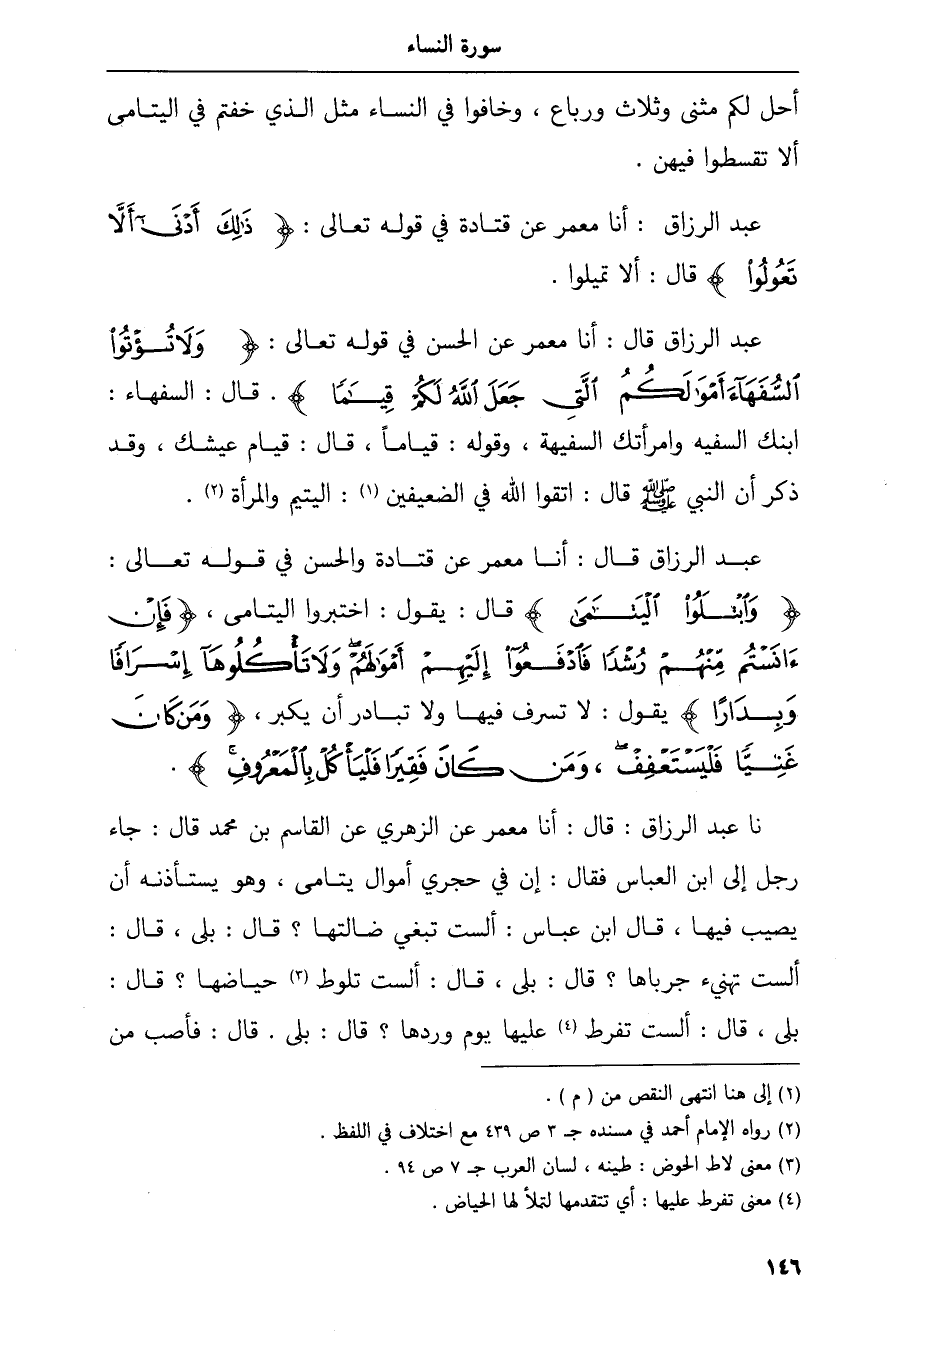 سورة النساء
أحل لكم مثنى وثلاث ورباع ، وخافوا في النساء مثل الذي خفتم في اليتامى
ألا تقسطوا فيهن .
عبد الرزاق : أنا معمر عن قتادة في قوله تعالى : ﴿ ذَٰلِكَ أَدْنَىٰٓ أَلَّا
تَعُولُوا۟ ﴾ قال : ألا تميلوا .
عبد الرزاق قال : أنا معمر عن الحسن في قوله تعالى : ﴿ وَلَا تُؤْتُوا۟
ٱلسُّفَهَآءَ أَمْوَٰلَكُمُ ٱلَّتِى جَعَلَ ٱللَّهُ لَكُمْ قِيَٰمًا ﴾ . قال : السفهاء :
ابنك السفيه وامرأتك السفيهة ، وقوله : قياماً ، قال : قيام عيشك ، وقد
ذكر أن النبي ﷺ قال : اتقوا الله في الضعيفين (١) : اليتيم والمرأة (٢) .
عبد الرزاق قال : أنا معمر عن قتادة والحسن في قوله تعالى :
﴿ وَٱبْتَلُوا۟ ٱلْيَتَٰمَىٰ ﴾ قال : يقول : اختبروا اليتامى ، ﴿ فَإِنْ
ءَانَسْتُم مِّنْهُمْ رُشْدًا فَٱدْفَعُوٓا۟ إِلَيْهِمْ أَمْوَٰلَهُمْ ۖ وَلَا تَأْكُلُوهَآ إِسْرَافًا
وَبِدَارًا ﴾ يقول : لا تسرف فيها ولا تبادر أن يكبر ، ﴿ وَمَن كَانَ
غَنِيًّا فَلْيَسْتَعْفِفْ ۖ ، وَمَن كَانَ فَقِيرًا فَلْيَأْكُلْ بِٱلْمَعْرُوفِ ۚ ﴾ .
نا عبد الرزاق : قال : أنا معمر عن الزهري عن القاسم بن محمد قال : جاء
رجل إلى ابن العباس فقال : إن في حجري أموال يتامى ، وهو يستأذنه أن
يصيب فيها ، قال ابن عباس : ألست تبغي ضالتها ؟ قال : بلى ، قال :
ألست تهنيء جرباها ؟ قال : بلى ، قال : ألست تلوط (٣) حياضها ؟ قال :
بلى ، قال : ألست تفرط (٤) عليها يوم وردها ؟ قال : بلى . قال : فأصب من
(١) إلى هنا انتهى النقص من ( م ) .
(٢) رواه الإمام أحمد في مسنده جـ ٣ ص ٤٣٩ مع اختلاف في اللفظ .
(٣) معنى لاط الحوض : طينه ، لسان العرب جـ ٧ ص ٩٤ .
(٤) معنى تفرط عليها : أي تتقدمها لتملأ لها الحياض .
١٤٦